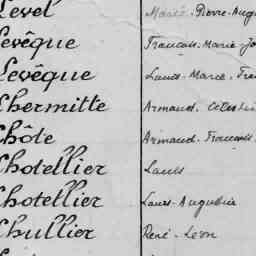 Level Marie-Pierre-Aug
Levêque Français-Marie-Jo
Levêque Louis-Marie-Fra
Lhermitte Armand-Célestin
Lhôte Armand-François
Lhotellier Louis
Lhotellier Louis-Augustin
Lhullier René-Léon